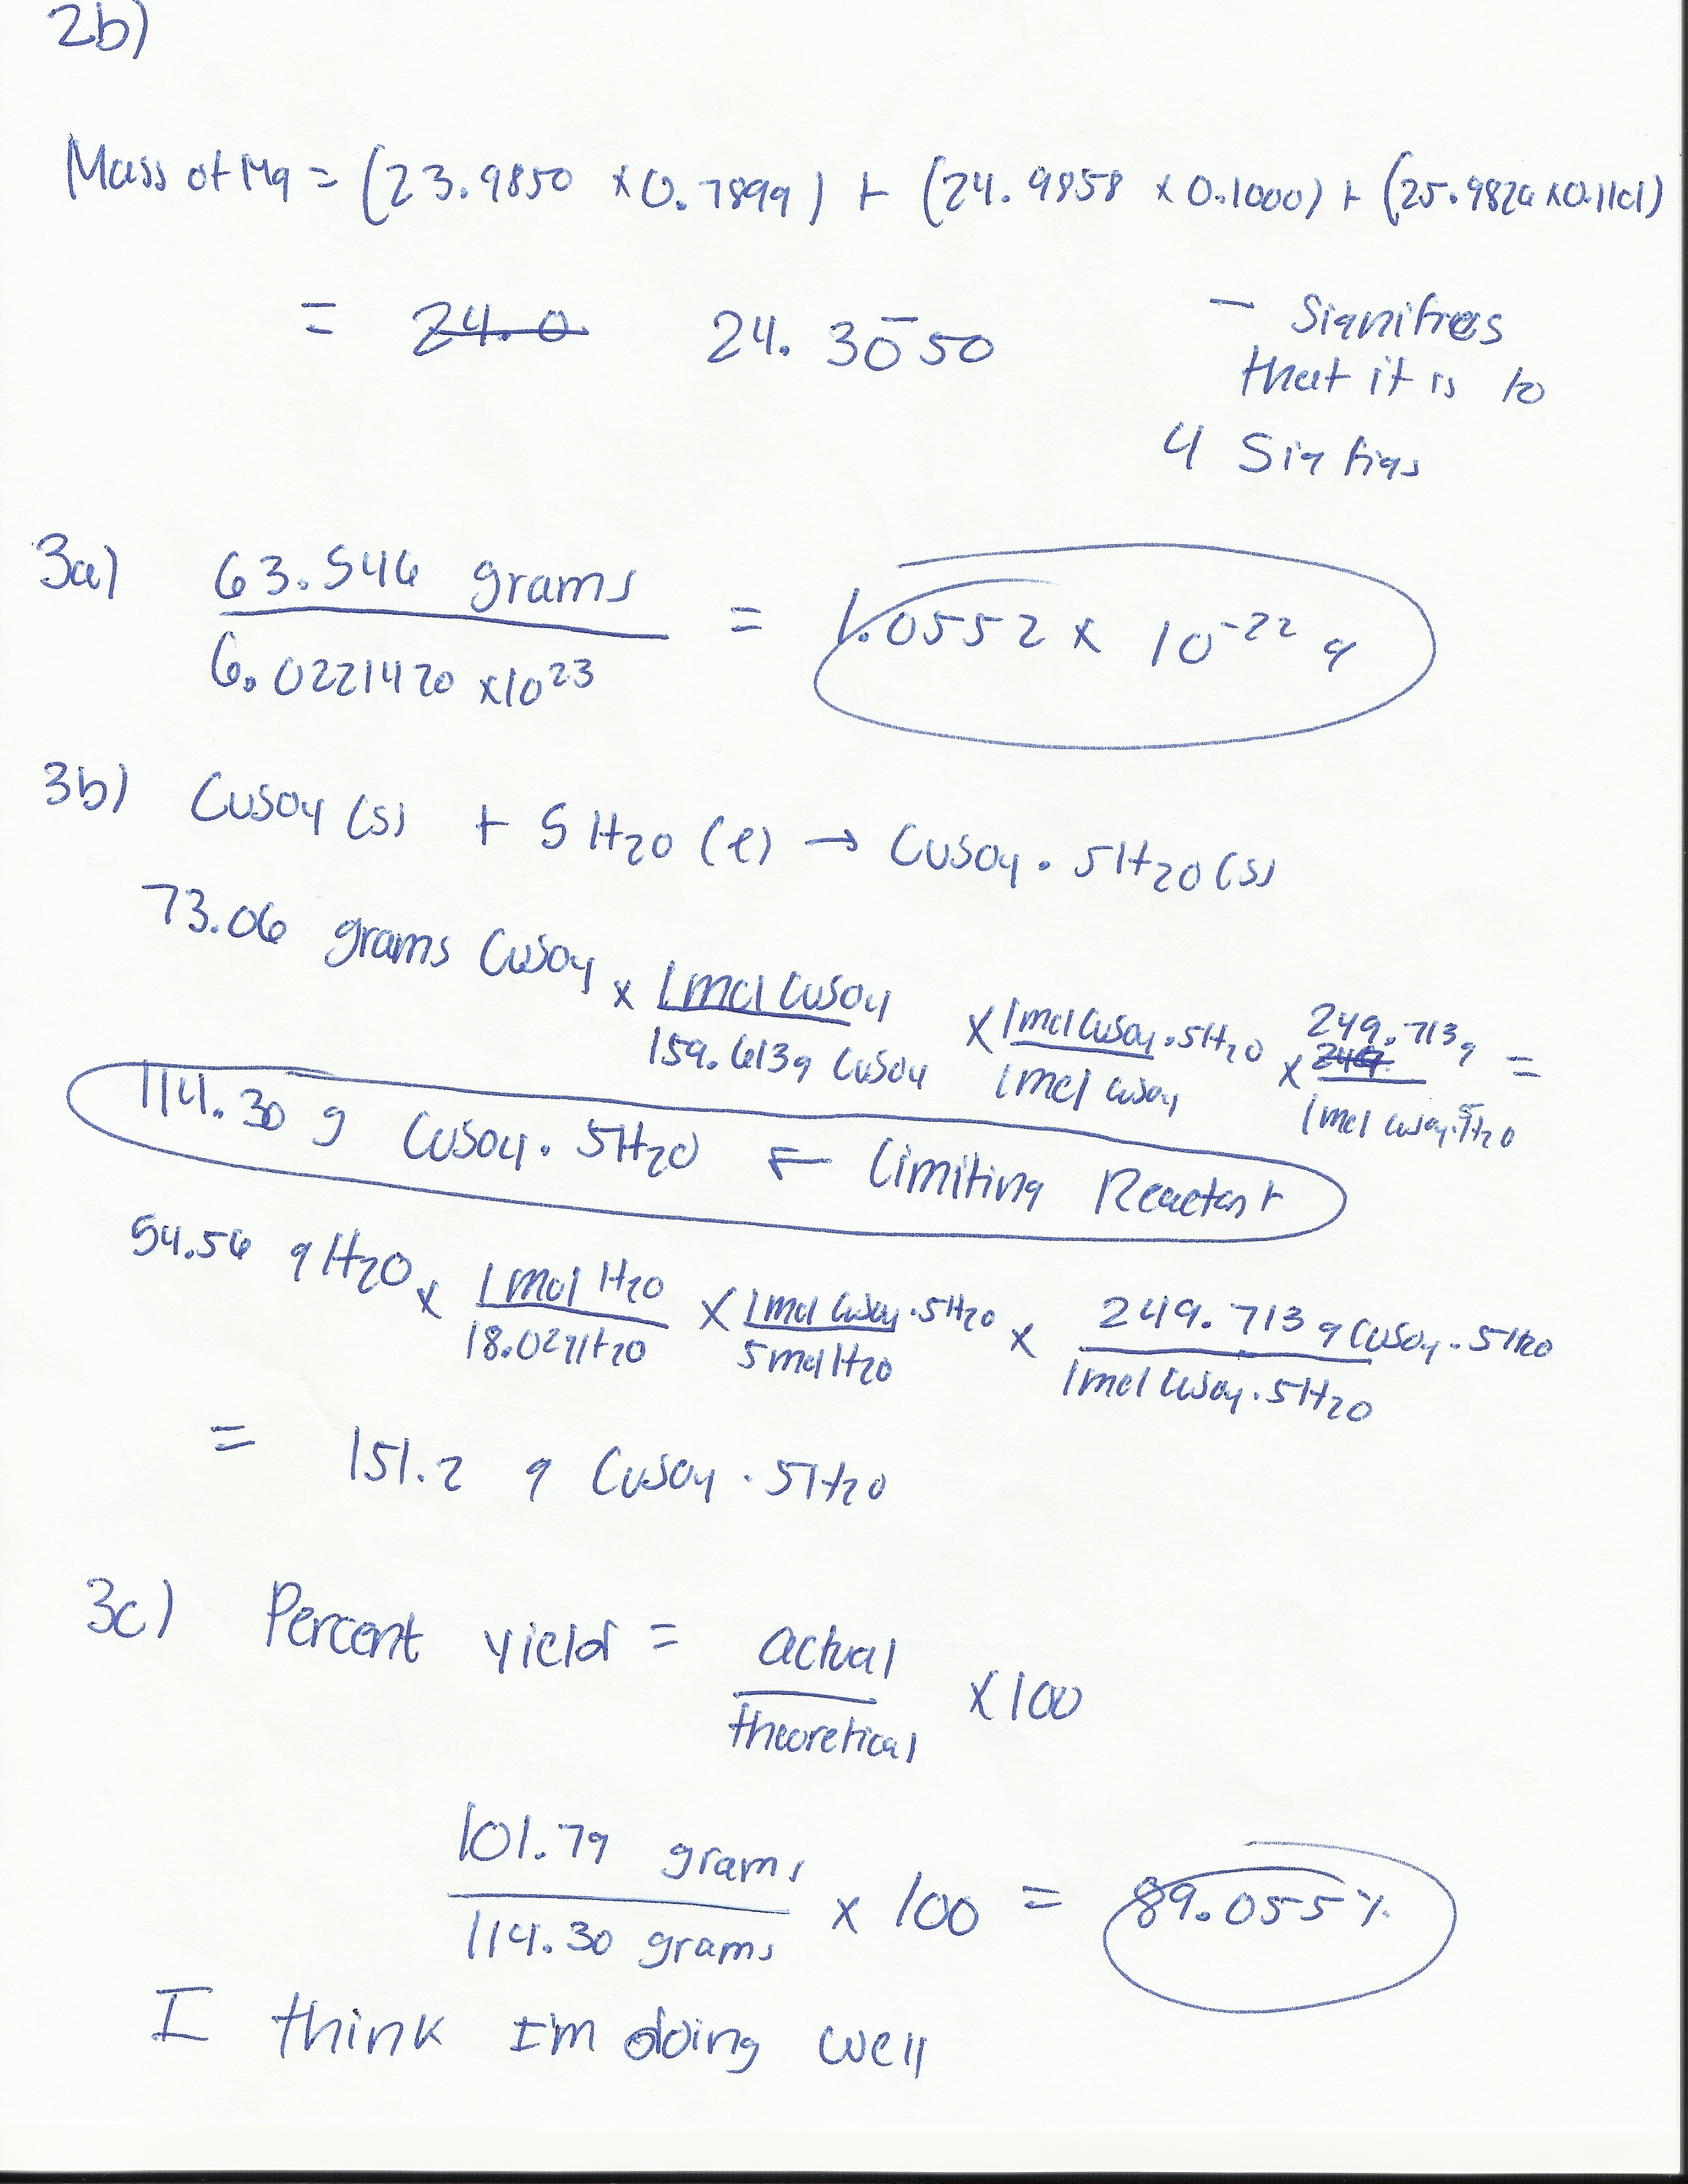 2b)
Mass of Mg = (23.9850 x 0.7899) + (24.9858 x 0.1000) + (25.9826 x 0.1101)
= 24.0 24.30̅50
— Signifies
that it is to
4 Sig figs
3a) 63.546 grams / 6.0221420 x10²³ = 1.0552 x 10⁻²² g
3b) CuSO₄ (s) + 5 H₂O (l) → CuSO₄ · 5H₂O (s)
73.06 grams CuSO₄ x 1 mol CuSO₄ / 159.613g CuSO₄ x 1 mol CuSO₄ · 5H₂O / 1 mol CuSO₄ x 249.713g / 1 mol CuSO₄ · 5H₂O =
114.30 g CuSO₄ · 5H₂O ← Limiting Reactant
54.56 g H₂O x 1 mol H₂O / 18.02g H₂O x 1 mol CuSO₄ · 5H₂O / 5 mol H₂O x 249.713 g CuSO₄ · 5H₂O / 1 mol CuSO₄ · 5H₂O
= 151.2 g CuSO₄ · 5H₂O
3c) Percent yield = actual / theoretical x100
101.79 grams / 114.30 grams x 100 = 89.055%
I think I'm doing well